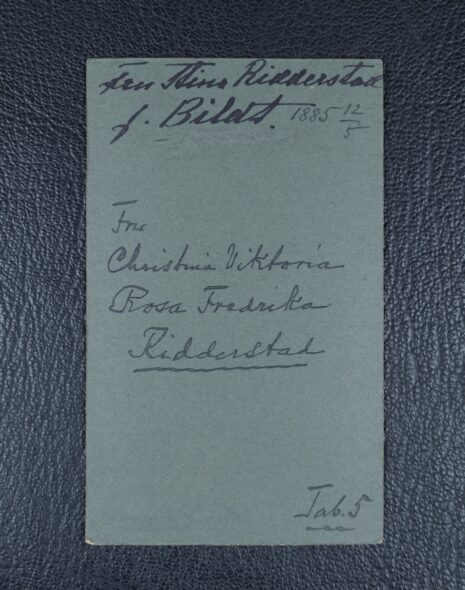 Fru Stina Ridderstad
f. Bildt. 1885 12/5
Fru
Christina Viktoria
Rosa Fredrika
Ridderstad
Tab. 5